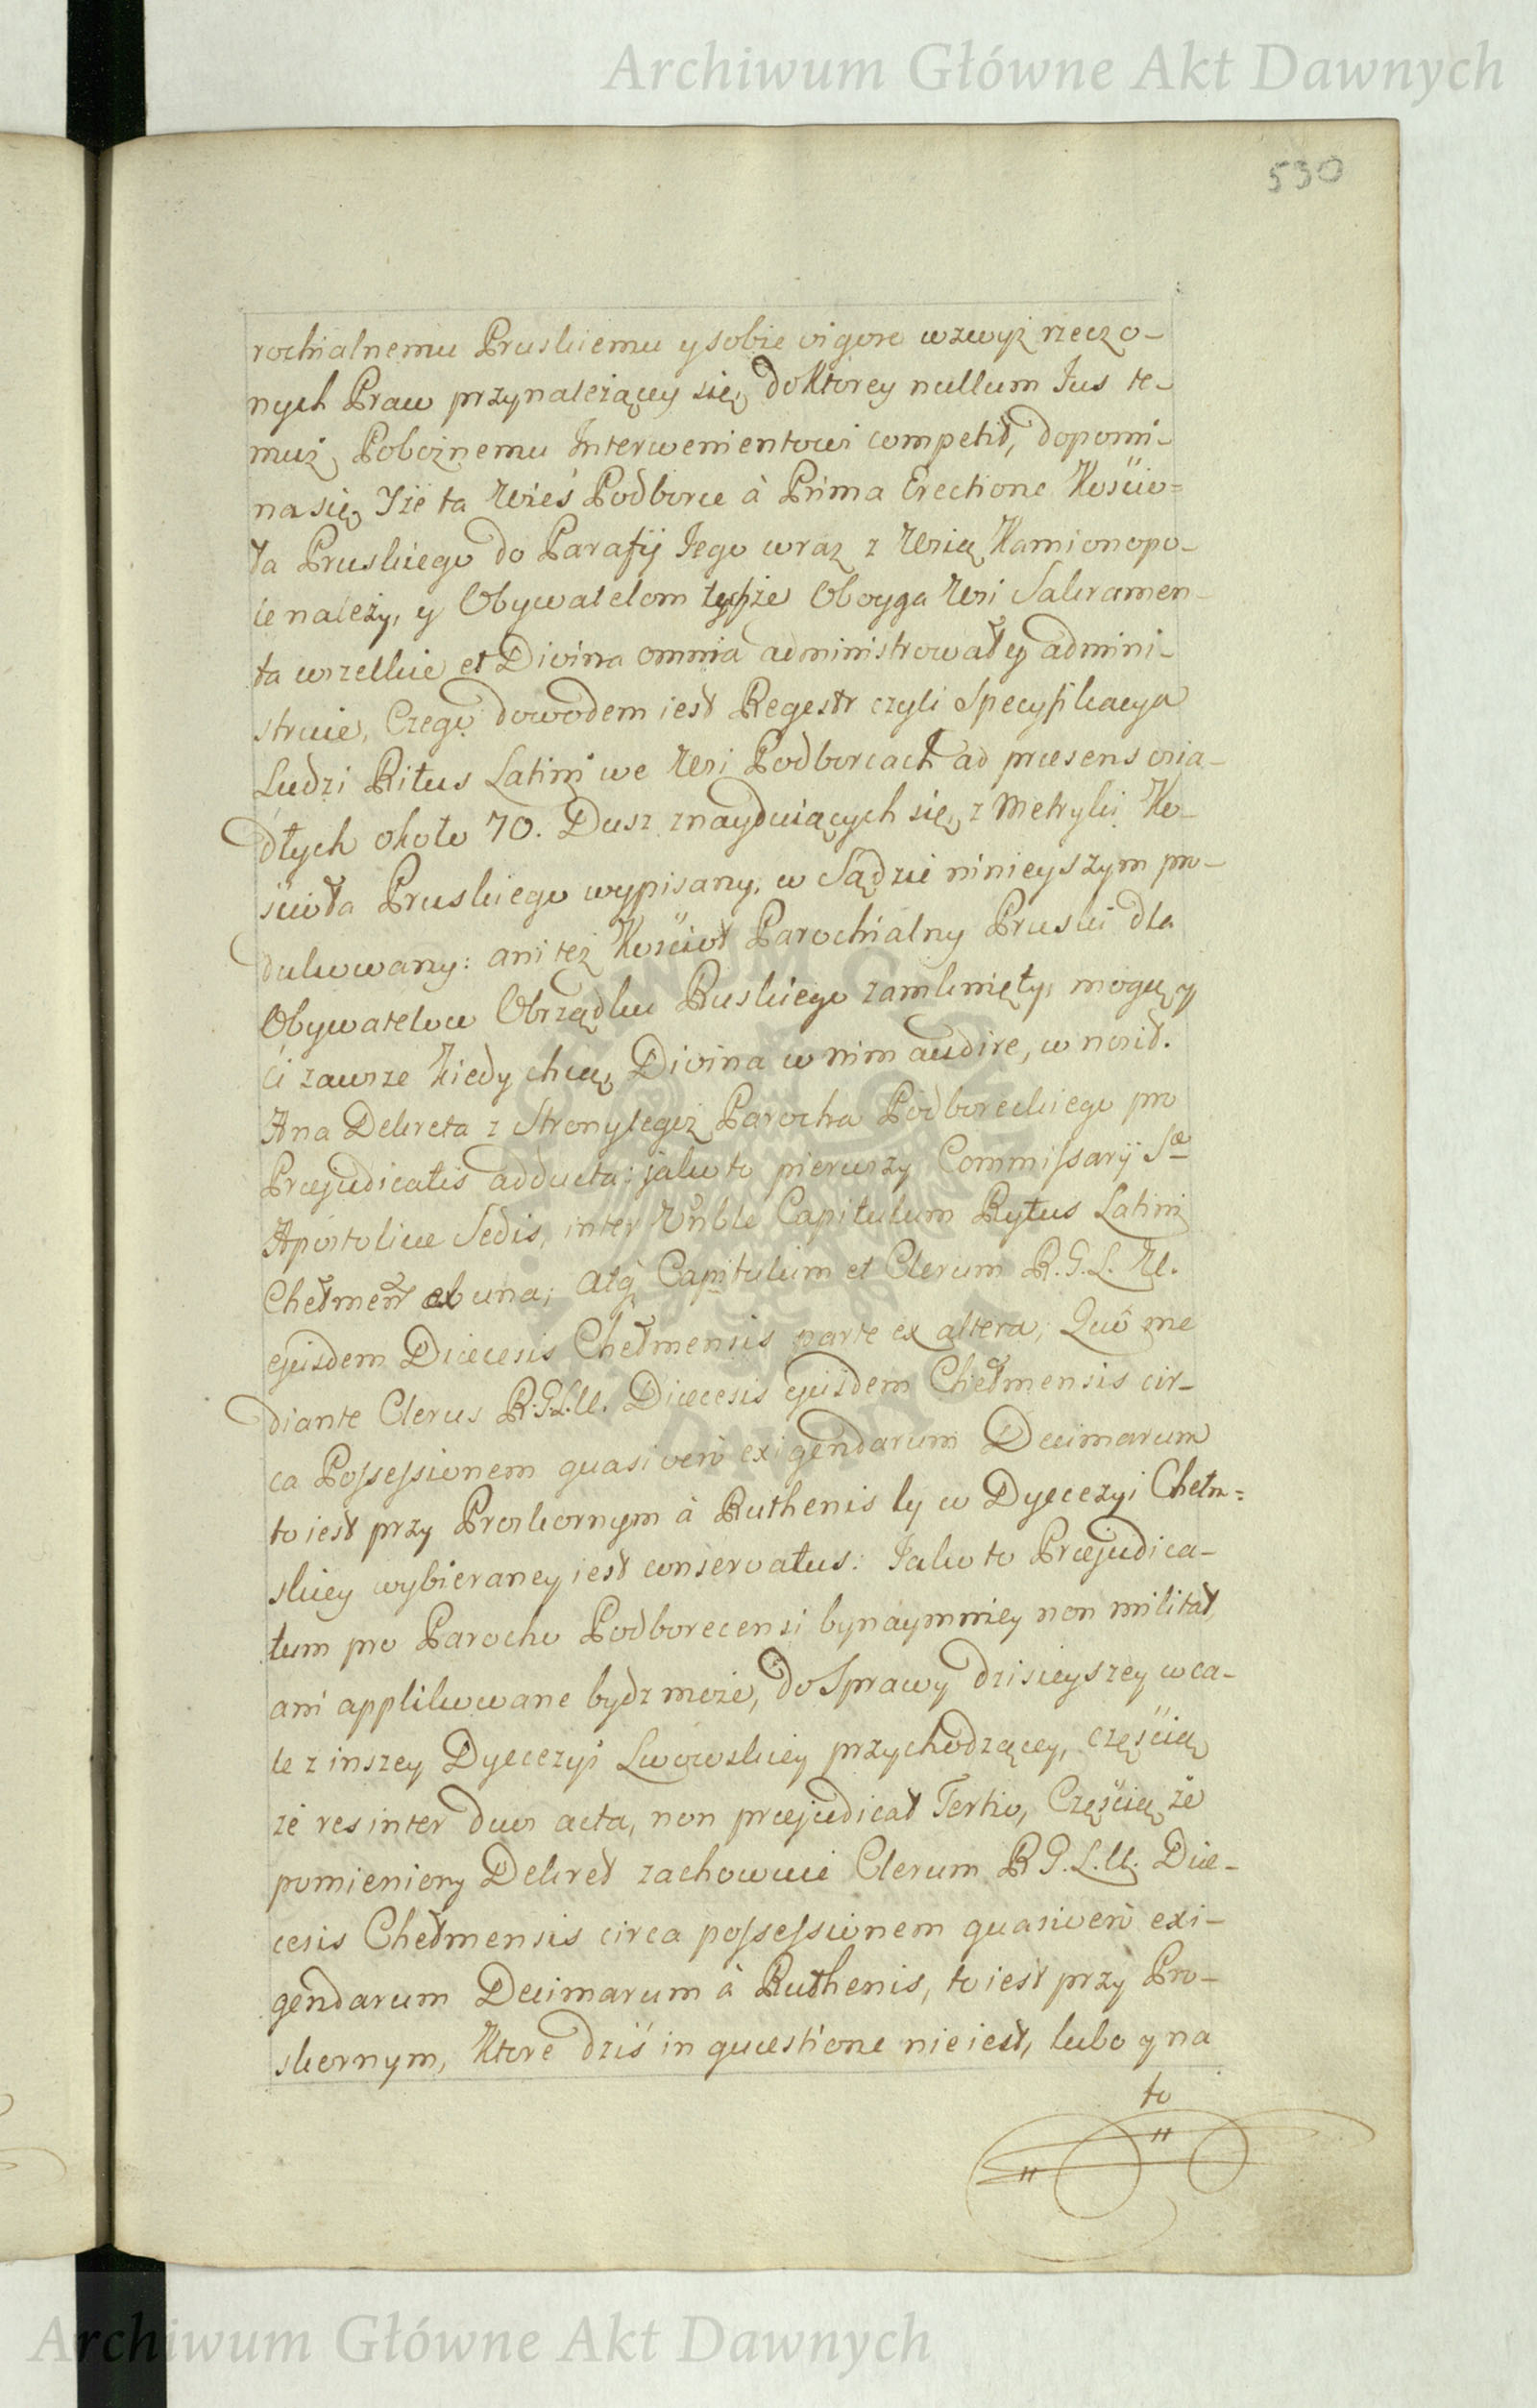 Archiwum Główne Akt Dawnych
530
rochialnemu Pruskiemu y sobie vigore wzwyż rzeczo-
nych Praw przynależącey się, do ktorey nullum Jus te-
muż Pobożnemu Interwenientowi competit, dopomi-
na się, Iże ta Wieś Podborce à Prima Erectione Kościo=
ła Pruskiego do Parafij Jego wraz z Wsią Kamionopo-
le należy, y Obywatelom tychże Oboyga Wsi Sakramen-
ta wszelkie et Divina omnia administrował y admini-
struie, Czego dowodem iest Regestr czyli Specyfikacya
Ludzi Ritus Latini we Wsi Podborcach ad præsens osia-
dłych około 70. Dusz znayduiących się, z Metryki Ko-
ścioła Pruskiego wypisany, w Sądzie ninieyszym pro-
dukowany: ani też Kościoł Parochialny Pruski dla
Obywatelow Obrządku Ruskiego zamknięty, mogą y
ci zawsze kiedy chcą, Divina w nim audire, wnosił.
A na Dekreta z Strony tegoż Parocha Podboreckiego pro
Præjudicatis adducta: jako to pierwszy Commissarij Sæ
Apostolicæ Sedis, inter Vnble Capitulum Rytus Latini
Chełmen ab una; atq Capitulum et Clerum R. G. L. U.
ejusdem Diæcesis Chełmensis parte ex altera, Quô me
diante Clerus R. G. L. U. Diæcesis ejusdem Chełmensis cir-
ca Possessionem quasi verò exigendarum Decimarum
to iest przy Proskornym à Ruthenis ly w Dyecezyi Chełm=
skiey wybieraney iest conservatus: Jako to Præjudica-
tum pro Parocho Podborecensi bynaymniey non militat,
ani applikowane bydz może, do Sprawy dzisieyszey wca-
le z inszey Dyecezyi Lwowskiey przychodzącey, częścią
że res inter duos acta, non præjudicat Tertio, Częścią że
pomieniony Dekret zachowuie Clerum R G. L. U. Diæ-
cesis Chełmensis circa possessionem quasi verò exi-
gendarum Decimarum à Ruthenis, to iest przy Pro-
skornym, ktore dziś in quæstione nie iest, lubo y na
to
Archiwum Główne Akt Dawnych